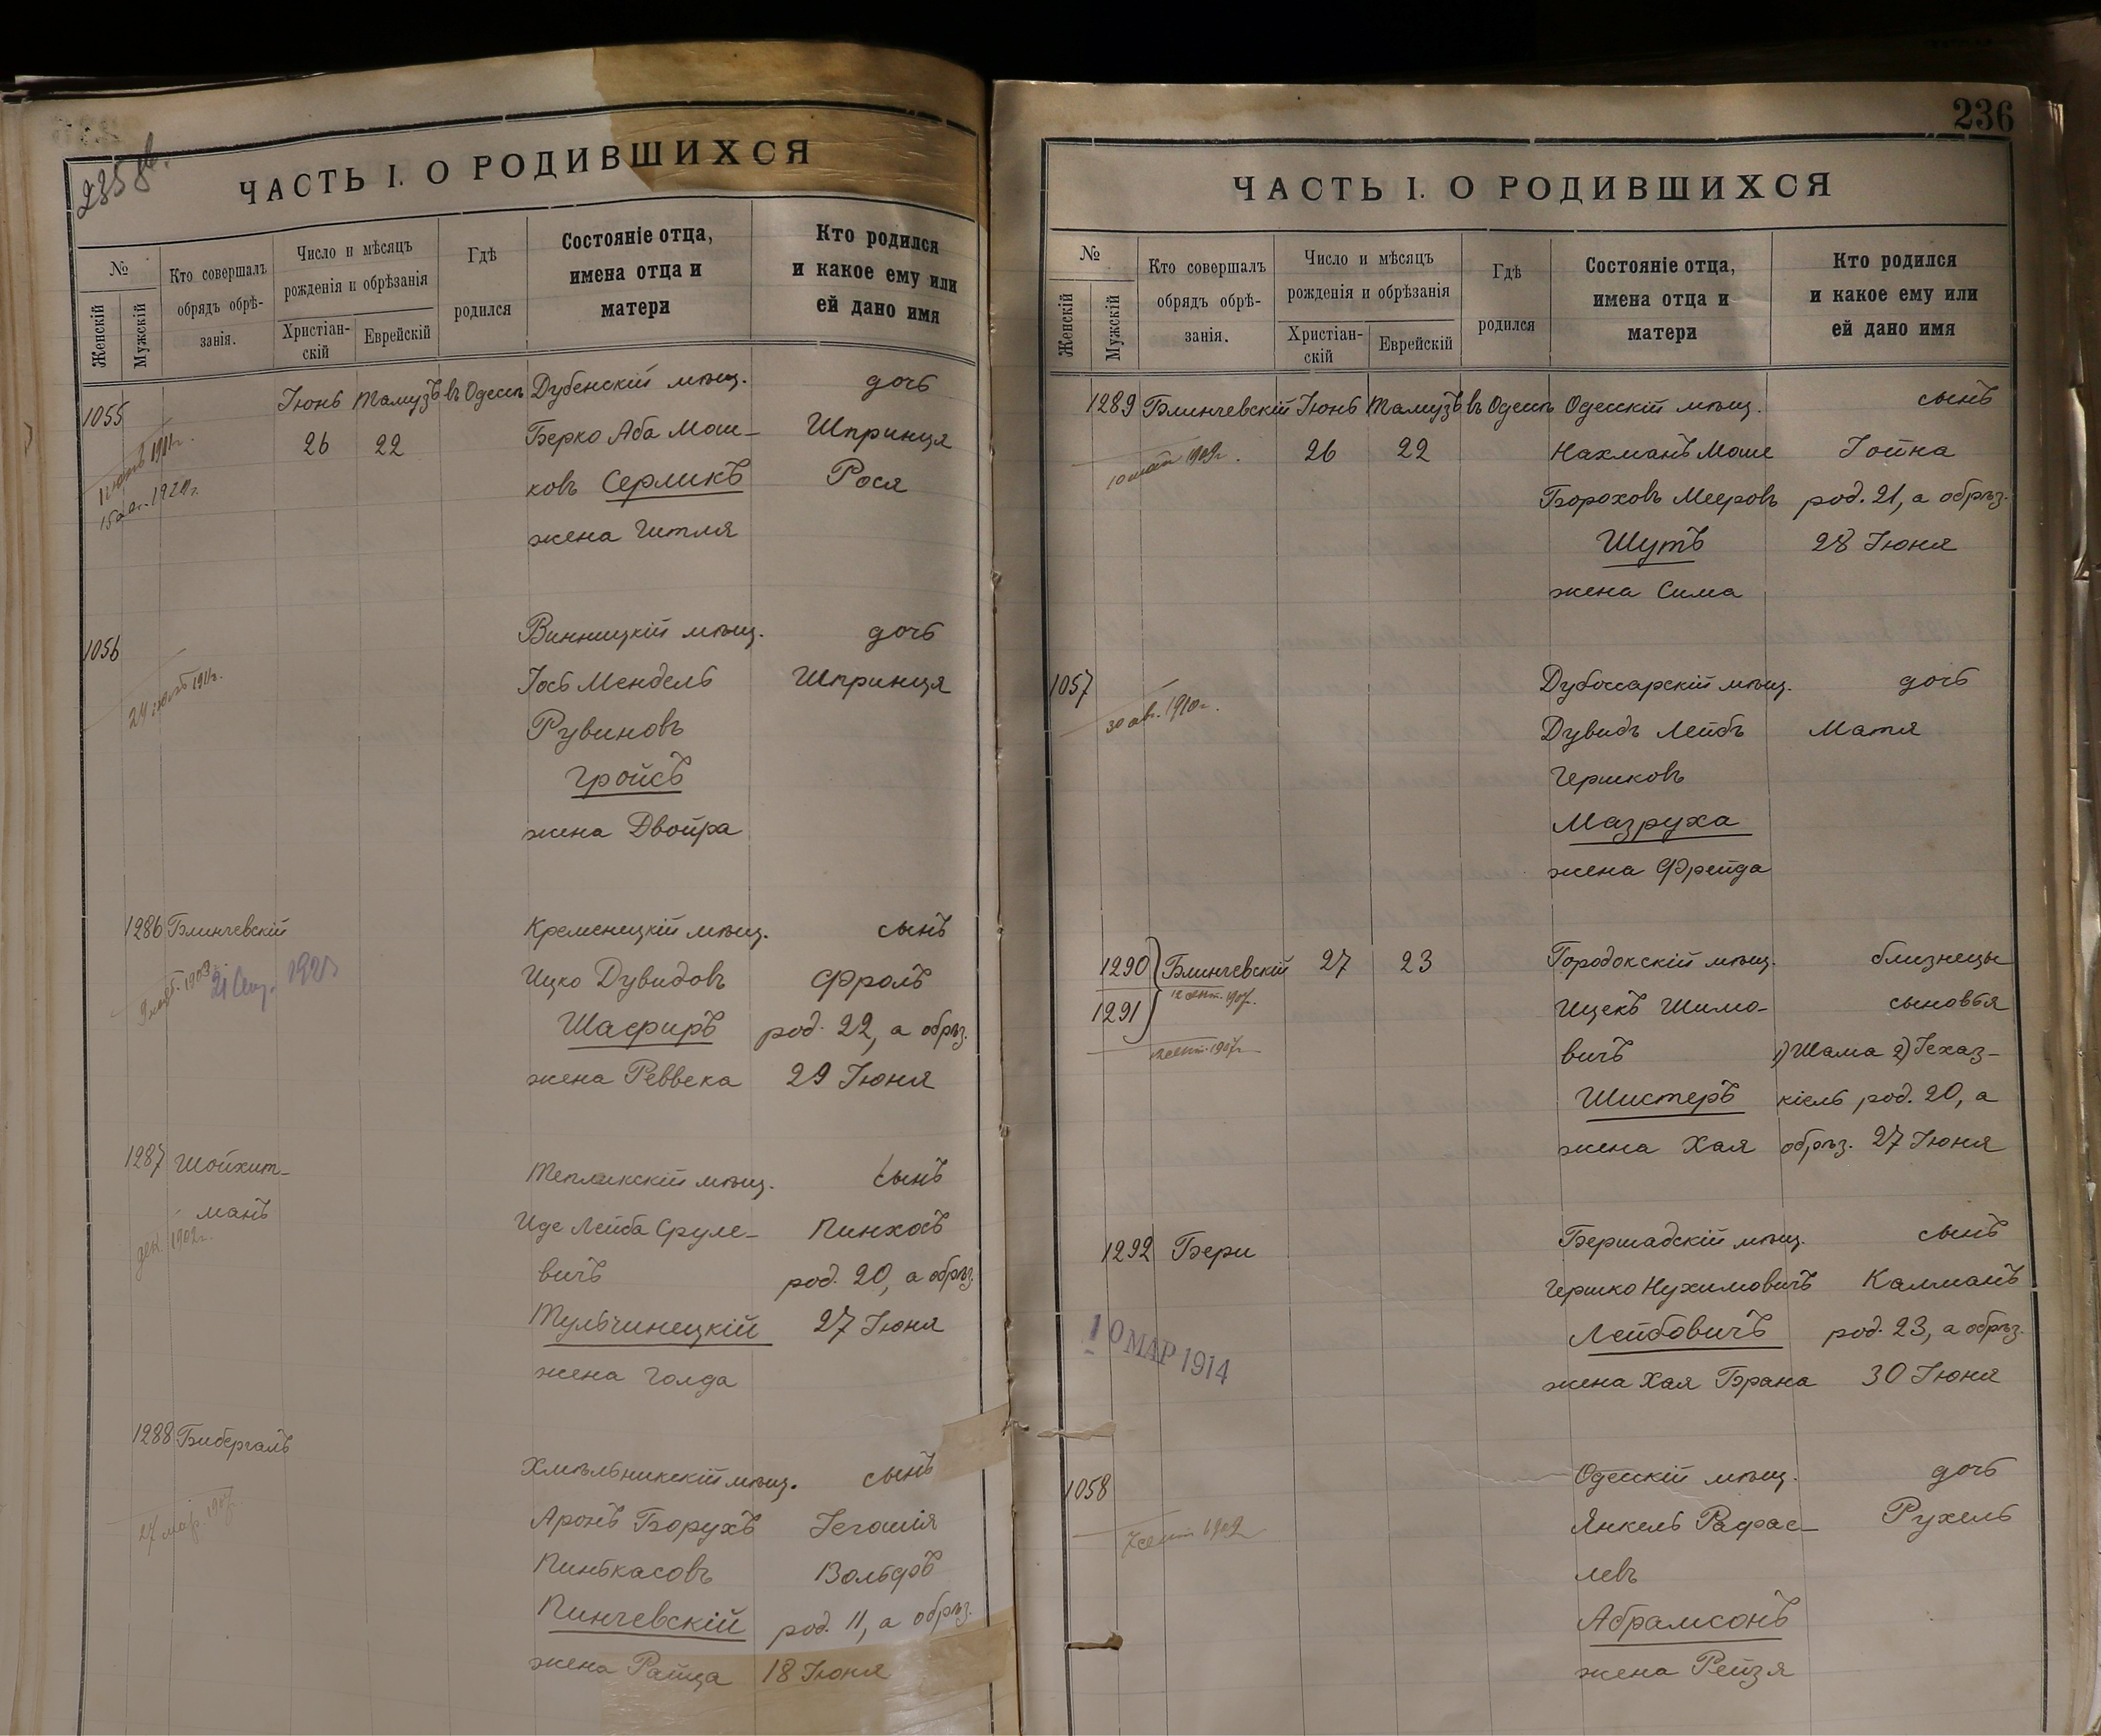 235 об.
ЧАСТЬ I. О РОДИВШИХСЯ
№
Женскій
Мужскій
Кто совершалъ
обрядъ обрѣ-
занія.
Число и мѣсяцъ
рожденія и обрѣзанія
Христіан-
скій
Еврейскій
Гдѣ
родился
Состояніе отца,
имена отца и
матери
Кто родился
и какое ему или
ей дано имя
1055 Іюнь Тамузъ въ Одессѣ Дубенскій мѣщ. дочь
26 22 Берко Аба Мош- Шпринця
ковъ Серликъ Рося
жена Гитля
1911г.
15 1924г.
1056 Винницкій мѣщ. дочь
Іось Мендель Шпринця
Рувиновъ
Гройсъ
жена Двойра
24 1911г.
1286 Блинчевскій Кременецкій мѣщ. сынъ
Ицко Дувидовъ Фроль
Шафиръ род. 22, а обрѣз.
жена Реввека 29 Іюня
1903
21
1287 Шойхит- Тепликскій мѣщ. сынъ
манъ Иде Лейба Сруле- Пинхосъ
вичъ род. 20, а обрѣз.
Тульчинецкій 27 Іюня
жена Голда
дек. 1902г.
1288 Бибергалъ Хмѣльникскій мѣщ. сынъ
Аронъ Борухъ Іегошія
Пинькасовъ Вольфъ
Пинчевскій род. 11, а обрѣз.
жена Райца 18 Іюня
27 мар. 1907
236
ЧАСТЬ I. О РОДИВШИХСЯ
№
Женскій
Мужскій
Кто совершалъ
обрядъ обрѣ-
занія.
Число и мѣсяцъ
рожденія и обрѣзанія
Христіан-
скій
Еврейскій
Гдѣ
родился
Состояніе отца,
имена отца и
матери
Кто родился
и какое ему или
ей дано имя
1289 Блинчевскій Іюнь Тамузъ въ Одессѣ Одесскій мѣщ. сынъ
26 22 Нахманъ Моше Іойна
Бороховъ Мееровъ род. 21, а обрѣз.
Шутъ 28 Іюня
жена Сима
10 мая 1909г.
1057 Дубоссарскій мѣщ. дочь
Дувидъ Лейбъ Матя
Гершковъ
Мазруха
жена Фрейда
30 ав. 1910г.
1290 Блинчевскій 27 23 Городокскій мѣщ. близнецы
1291 Ицекъ Шимо- сыновья
вичъ 1) Шама 2) Іехаз-
Шистеръ кіель род. 20, а
жена Хая обрѣз. 27 Іюня
12 сент. 1907г.
12 сент. 1907г.
1292 Бери Бершадскій мѣщ. сынъ
Гершко Нухимовичъ Калманъ
Лейбовичъ род. 23, а обрѣз.
жена Хая Брана 30 Іюня
10 МАР 1914
1058 Одесскій мѣщ. дочь
Янкель Рафае- Рухель
левъ
Абрамсонъ
жена Рейзя
7 сент. 1909